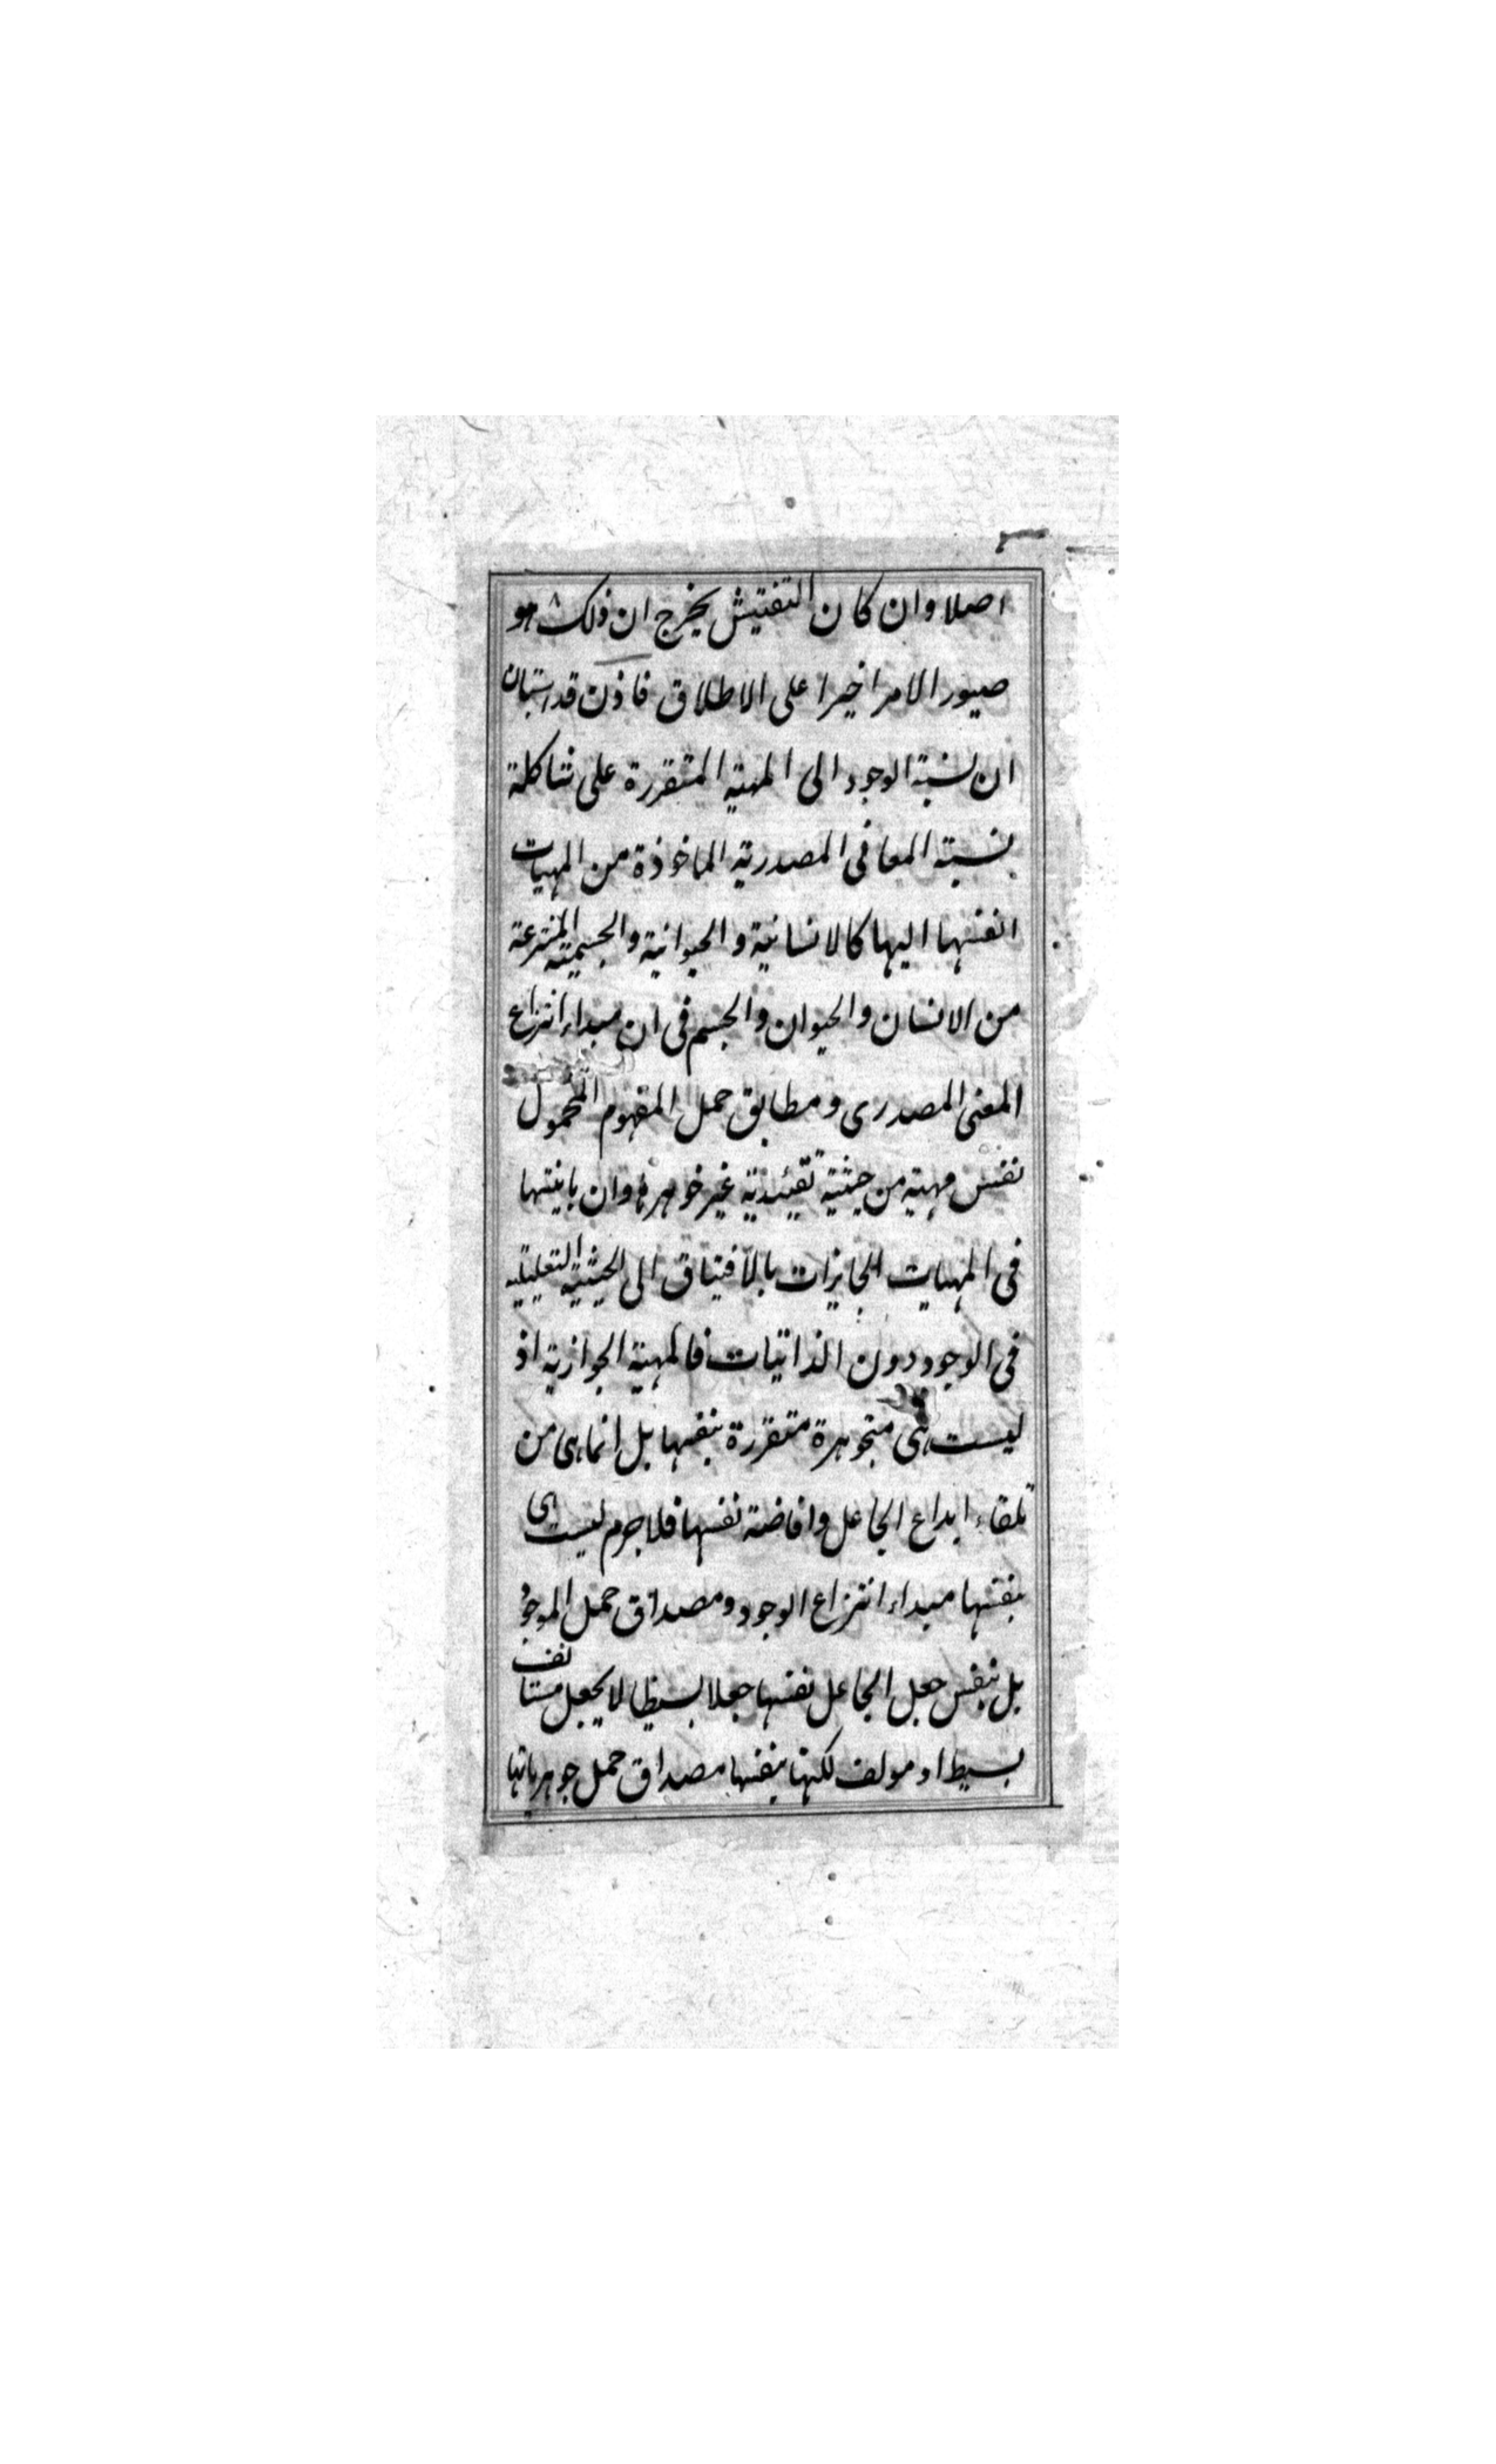 اصلا وان كان التفتيش يخرج ان ذلك هو
صيور الامر اخيرا على الاطلاق فاذن قد استبان
ان نسبة الوجود الى المهية المتقررة على شاكلة
نسبة المعانى المصدرية الماخوذة من المهيات
انفسها اليها كالانسانية والحيوانية والجسمية المنتزعة
من الانسان والحيوان والجسم فى ان مبداء انتزاع
المعنى المصدرى ومطابق حمل المفهوم المحمول
نفس مهية من حيثية تقييدية غير جوهرها وان باينتها
فى المهيات الجايزات بالافتياق الى الحيثية التعليليه
فى الوجود دون الذاتيات فالمهية الجوازية اذ
ليست هى متجوهرة متقررة بنفسها بل انما هى من
تلقاء ابداع الجاعل وافاضة نفسها فلا جرم ليست هى
بنفسها مبداء انتزاع الوجود ومصداق حمل الموجود
بل بنفس جعل الجاعل نفسها جعلا بسيطا لا بجعل مستانف
بسيط او مولف لكنها بنفسها مصداق حمل جوهرياتها